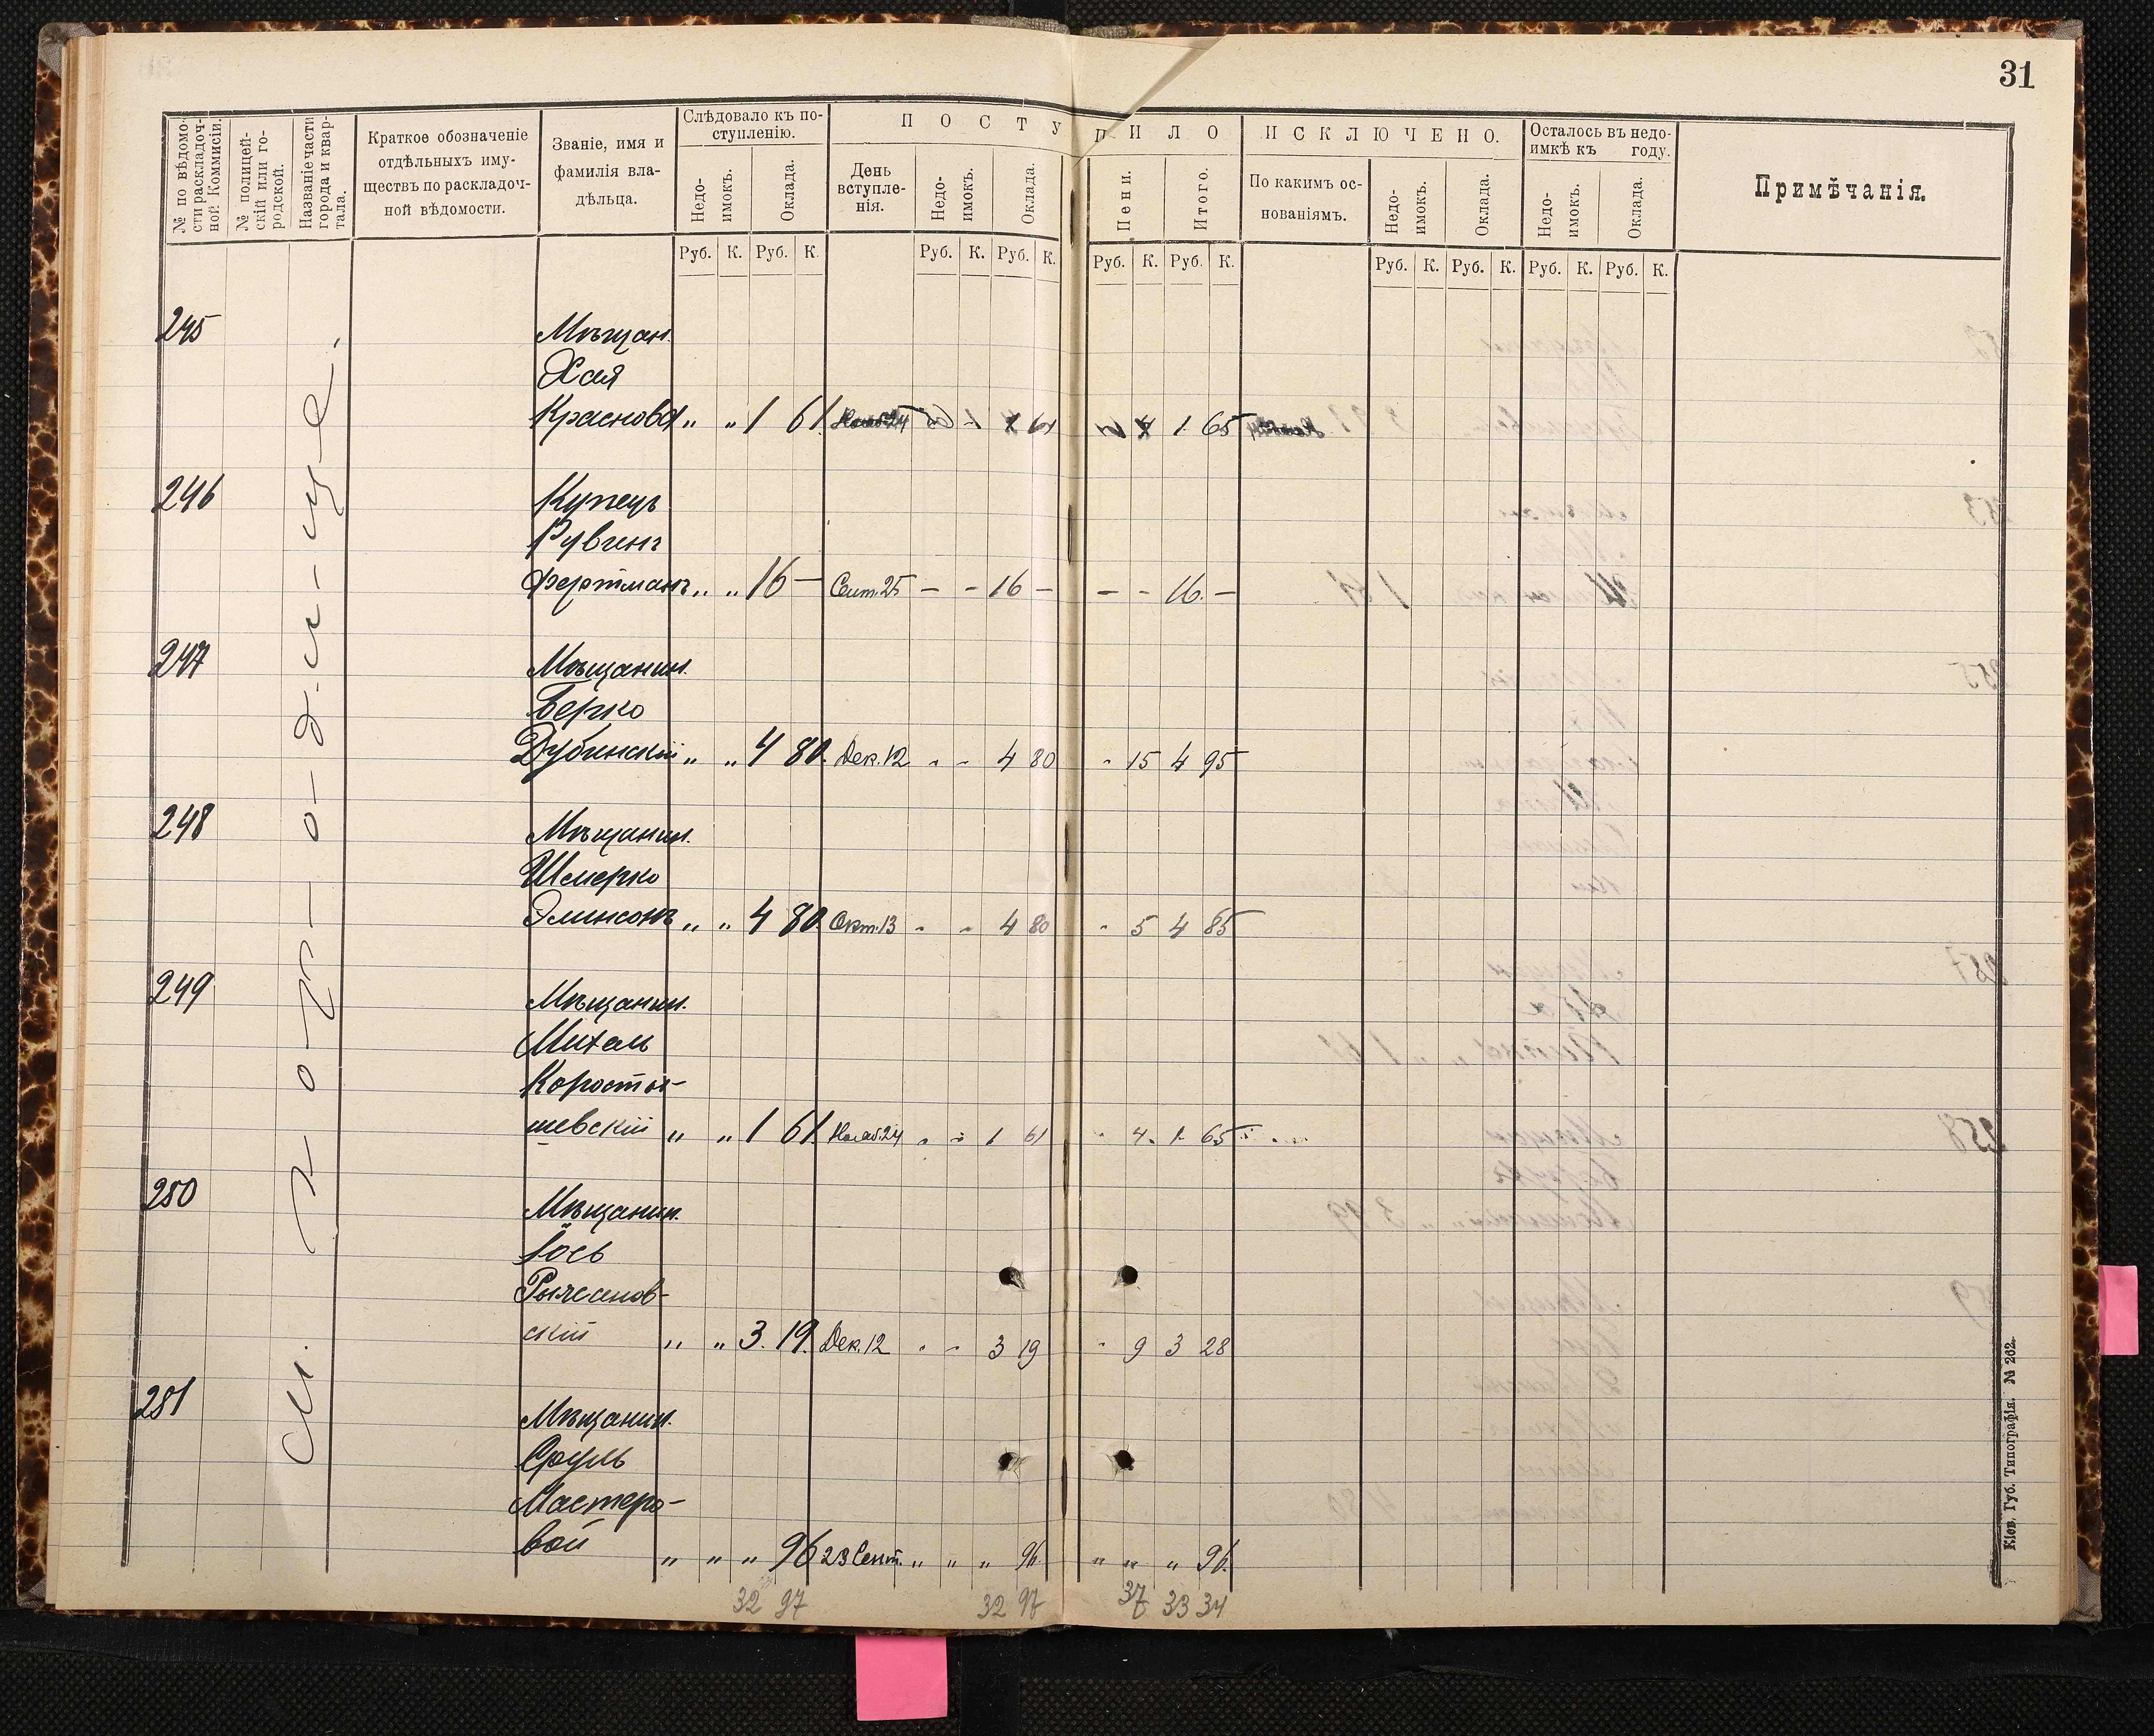 31
№ по вѣдомо-
сти раскладоч-
ной Коммисіи.
№ полицей-
скій или го-
родской.
Названіе части
города и квар-
тала.
Краткое обозначеніе
отдѣльныхъ иму-
ществъ по раскладоч-
ной вѣдомости.
Званіе, имя и
фамилія вла-
дѣльца.
Слѣдовало къ по-
ступленію.
Недо-
имокъ.
Оклада.
ПОСТУПИЛО
День
вступле-
нія.
Недо-
имокъ.
Оклада.
Пени.
Итого.
ИСКЛЮЧЕНО.
По какимъ ос-
нованіямъ.
Недо-
имокъ.
Оклада.
Осталось въ недо-
имкѣ къ году.
Недо-
имокъ.
Оклада.
Примѣчанія.
Руб. К. Руб. К. Руб. К. Руб. К. Руб. К. Руб. К. Руб. К. Руб. К. Руб. К. Руб. К.
245 Мѣщан.
Хая
Краснова „ „ 1 61 61 1 65
246 Купецъ
Рувинъ
Фертманъ „ „ 16 — Сент. 25 — - 16 — — - 16. —
247 Мѣщанин.
Берко
Дубинскій „ „ 4 80. Дек. 12 - - 4 80 - 15 4 95
248 Мѣщанин.
Шмерко
Элинсонъ „ „ 4 80 Окт. 13 - - 4 80 - 5 4 85
249 Мѣщанин.
Михель
Коросты-
шевскій „ „ 1 61. Нояб. 24 - - 1 61 - 4. 1. 65
250 Мѣщанин.
Іось
Рыжанов-
скій „ „ 3. 19. Дек. 12 - - 3 19 - 9 3 28
251 Мѣщанин.
Сруль
Мастеро-
вой „ „ „ 96 23 Сент. „ „ „ 96. „ „ „ 96.
32 97 32 97 37 33 34
Кіев. Губ. Типографія. № 262.